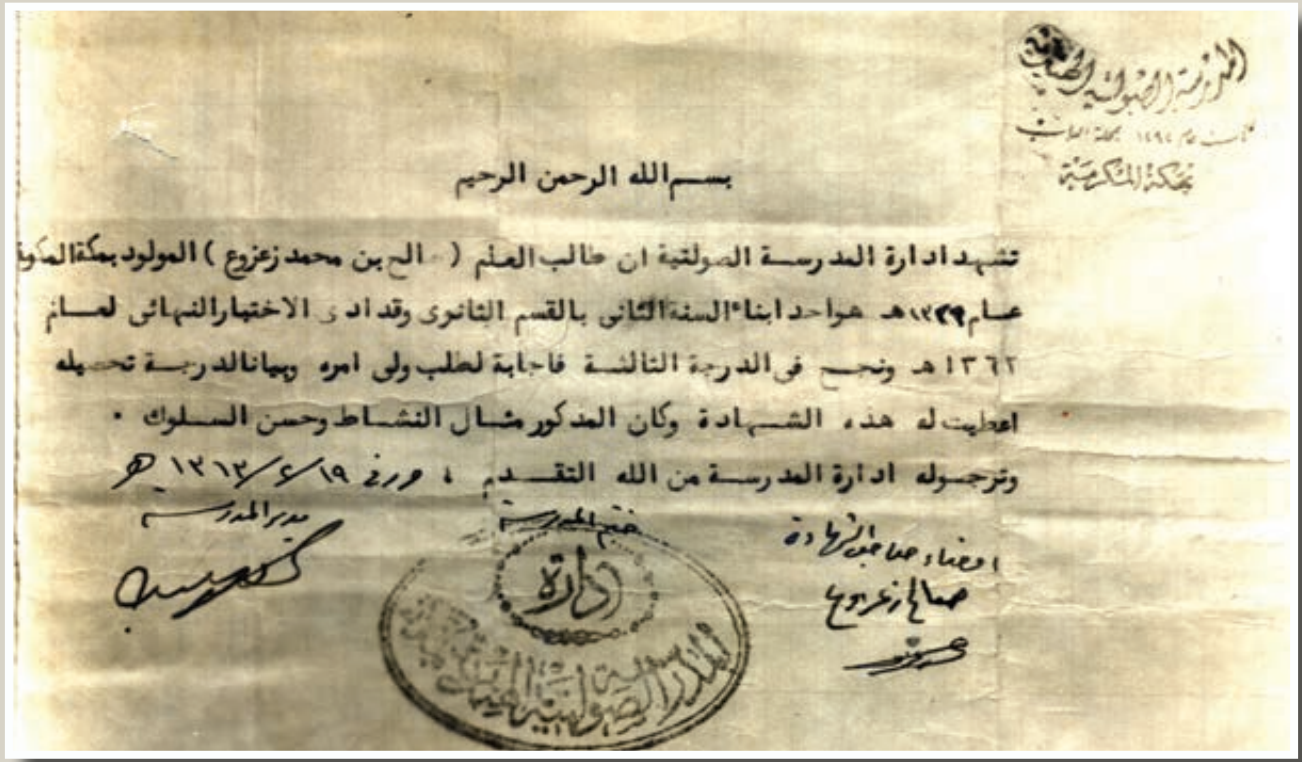 المدرسة الصولتية الهندية
عام ١٢٩٢ بمحلة الباب
بمكة المكرمة
بسم الله الرحمن الرحيم
تشهد ادارة المدرسة الصولتية ان طالب العلم ( صالح بن محمد زعزوع ) المولود بمكة المكرمة
عام ١٣٢٩هـ هو احد ابناء السنة الثانى بالقسم الثانوى وقد ادى الاختبار النهائى لعام
١٣٦٢هـ ونجح فى الدرجة الثالثة فاجابة لطلب ولى امره وبيانا لدرجة تحصيله
اعطيت له هذه الشهادة وكان المذكور مثال النشاط وحسن السلوك .
وترجو له ادارة المدرسة من الله التقدم ،
امضاء صاحب الشهادة
ختم المدرسة
مدير المدرسة
صالح زعزوع
ادارة
المدرسة الصولتية